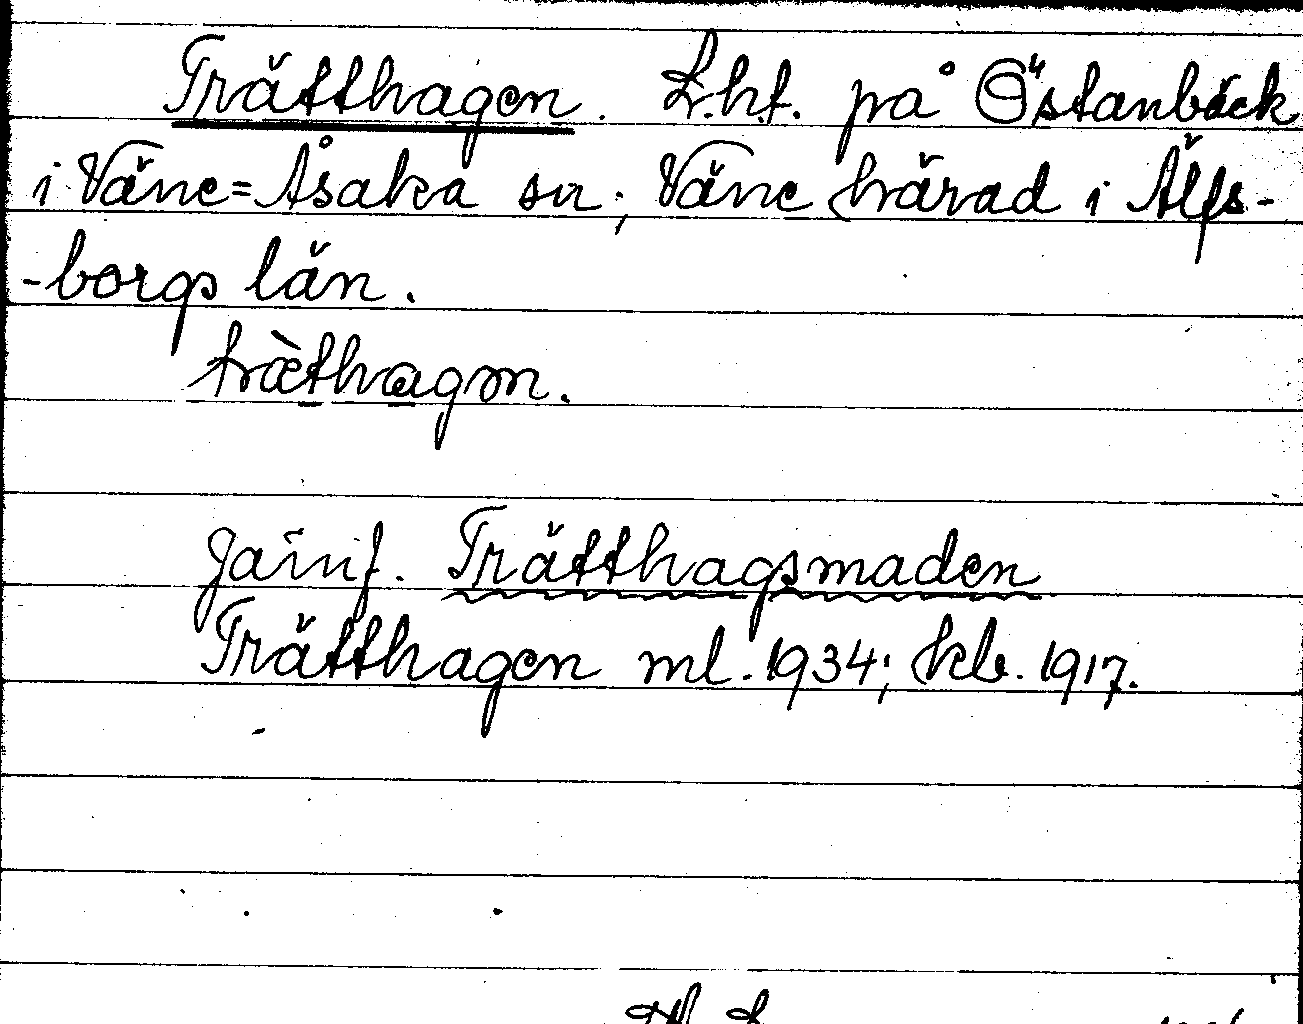 Trätthagen. L.hf. på Östanbäck
i Väne=Åsaka sn; Väne härad i Älfs-
-borgs län.
træthagɷn.
jämf. Trätthagsmaden
Trätthagen ml. 1934; kb. 1917.